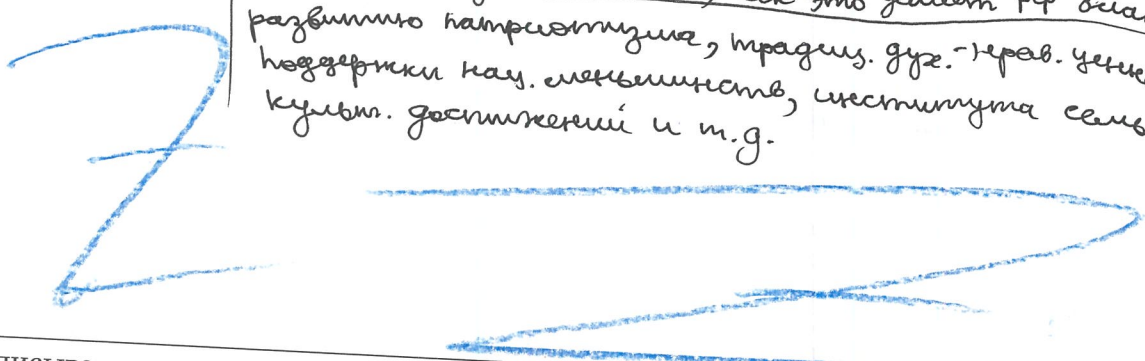 это делает РФ
развитию патриотизма, традиц. дух.-нрав. ценн
поддержки нац. меньшинств, института семь
культ. достижений и т.д.
Z
Z